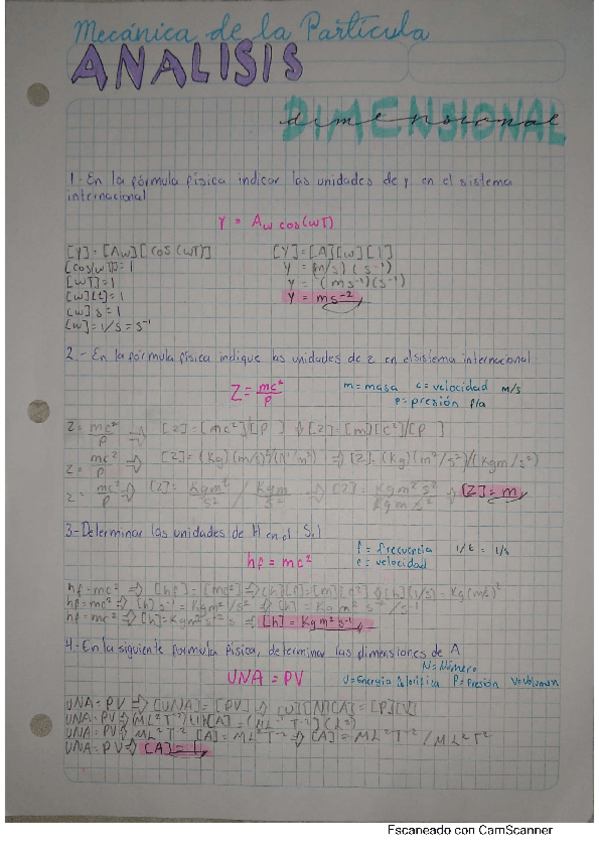 Mecánica de la Partícula
ANALISIS
DIMENSIONAL
dimensional
1.- En la fórmula física indicar las unidades de y en el sistema
internacional
Y = Aw cos(wT)
[Y] = [Aw][cos(wT)]
[cos(wT)] = 1
[wT] = 1
[w][t] = 1
[w] s = 1
[w] = 1/s = s⁻¹
[Y] = [A][w][1]
Y = (m/s)(s⁻¹)
Y = (ms⁻¹)(s⁻¹)
Y = ms⁻²
2.- En la fórmula física indique las unidades de z en el sistema internacional
Z = mc²/P
m = masa c = velocidad m/s
P = presión P/a
Z = mc²/P → [Z] = [mc²]/[P] → [Z] = [m][c²]/[P]
Z = mc²/P → [Z] = (Kg)(m/s)²/(N/m²) → [Z] = (Kg)(m²/s²)/(Kgm/s²)
Z = mc²/P → [Z] = Kgm²/s² / Kgm/s² → [Z] = Kgm²s²/Kgms² → [Z] = m
3.- Determinar las unidades de H en el S.I
hf = mc²
f = frecuencia 1/t = 1/s
c = velocidad
hf = mc² → [hf] = [mc²] → [h][f] = [m][c²] → [h](1/s) = Kg(m/s)²
hf = mc² → [h] s⁻¹ = Kgm²/s² → [h] = Kg m² s⁻²/s⁻¹
hf = mc² → [h] = Kgm² s⁻² s → [h] = Kgm² s⁻¹
4.- En la siguiente formula física, determinar las dimensiones de A
UNA = PV
N = Número
U = Energía Calorífica P = Presión V = Volumen
UNA = PV → [UNA] = [PV] → [U][N][A] = [P][V]
UNA = PV → (ML²T⁻²)(1)[A] = (ML⁻¹T⁻²)(L³)
UNA = PV → ML²T⁻² [A] = ML²T⁻² → [A] = ML²T⁻²/ML²T⁻²
UNA = PV → [A] = 1
Escaneado con CamScanner